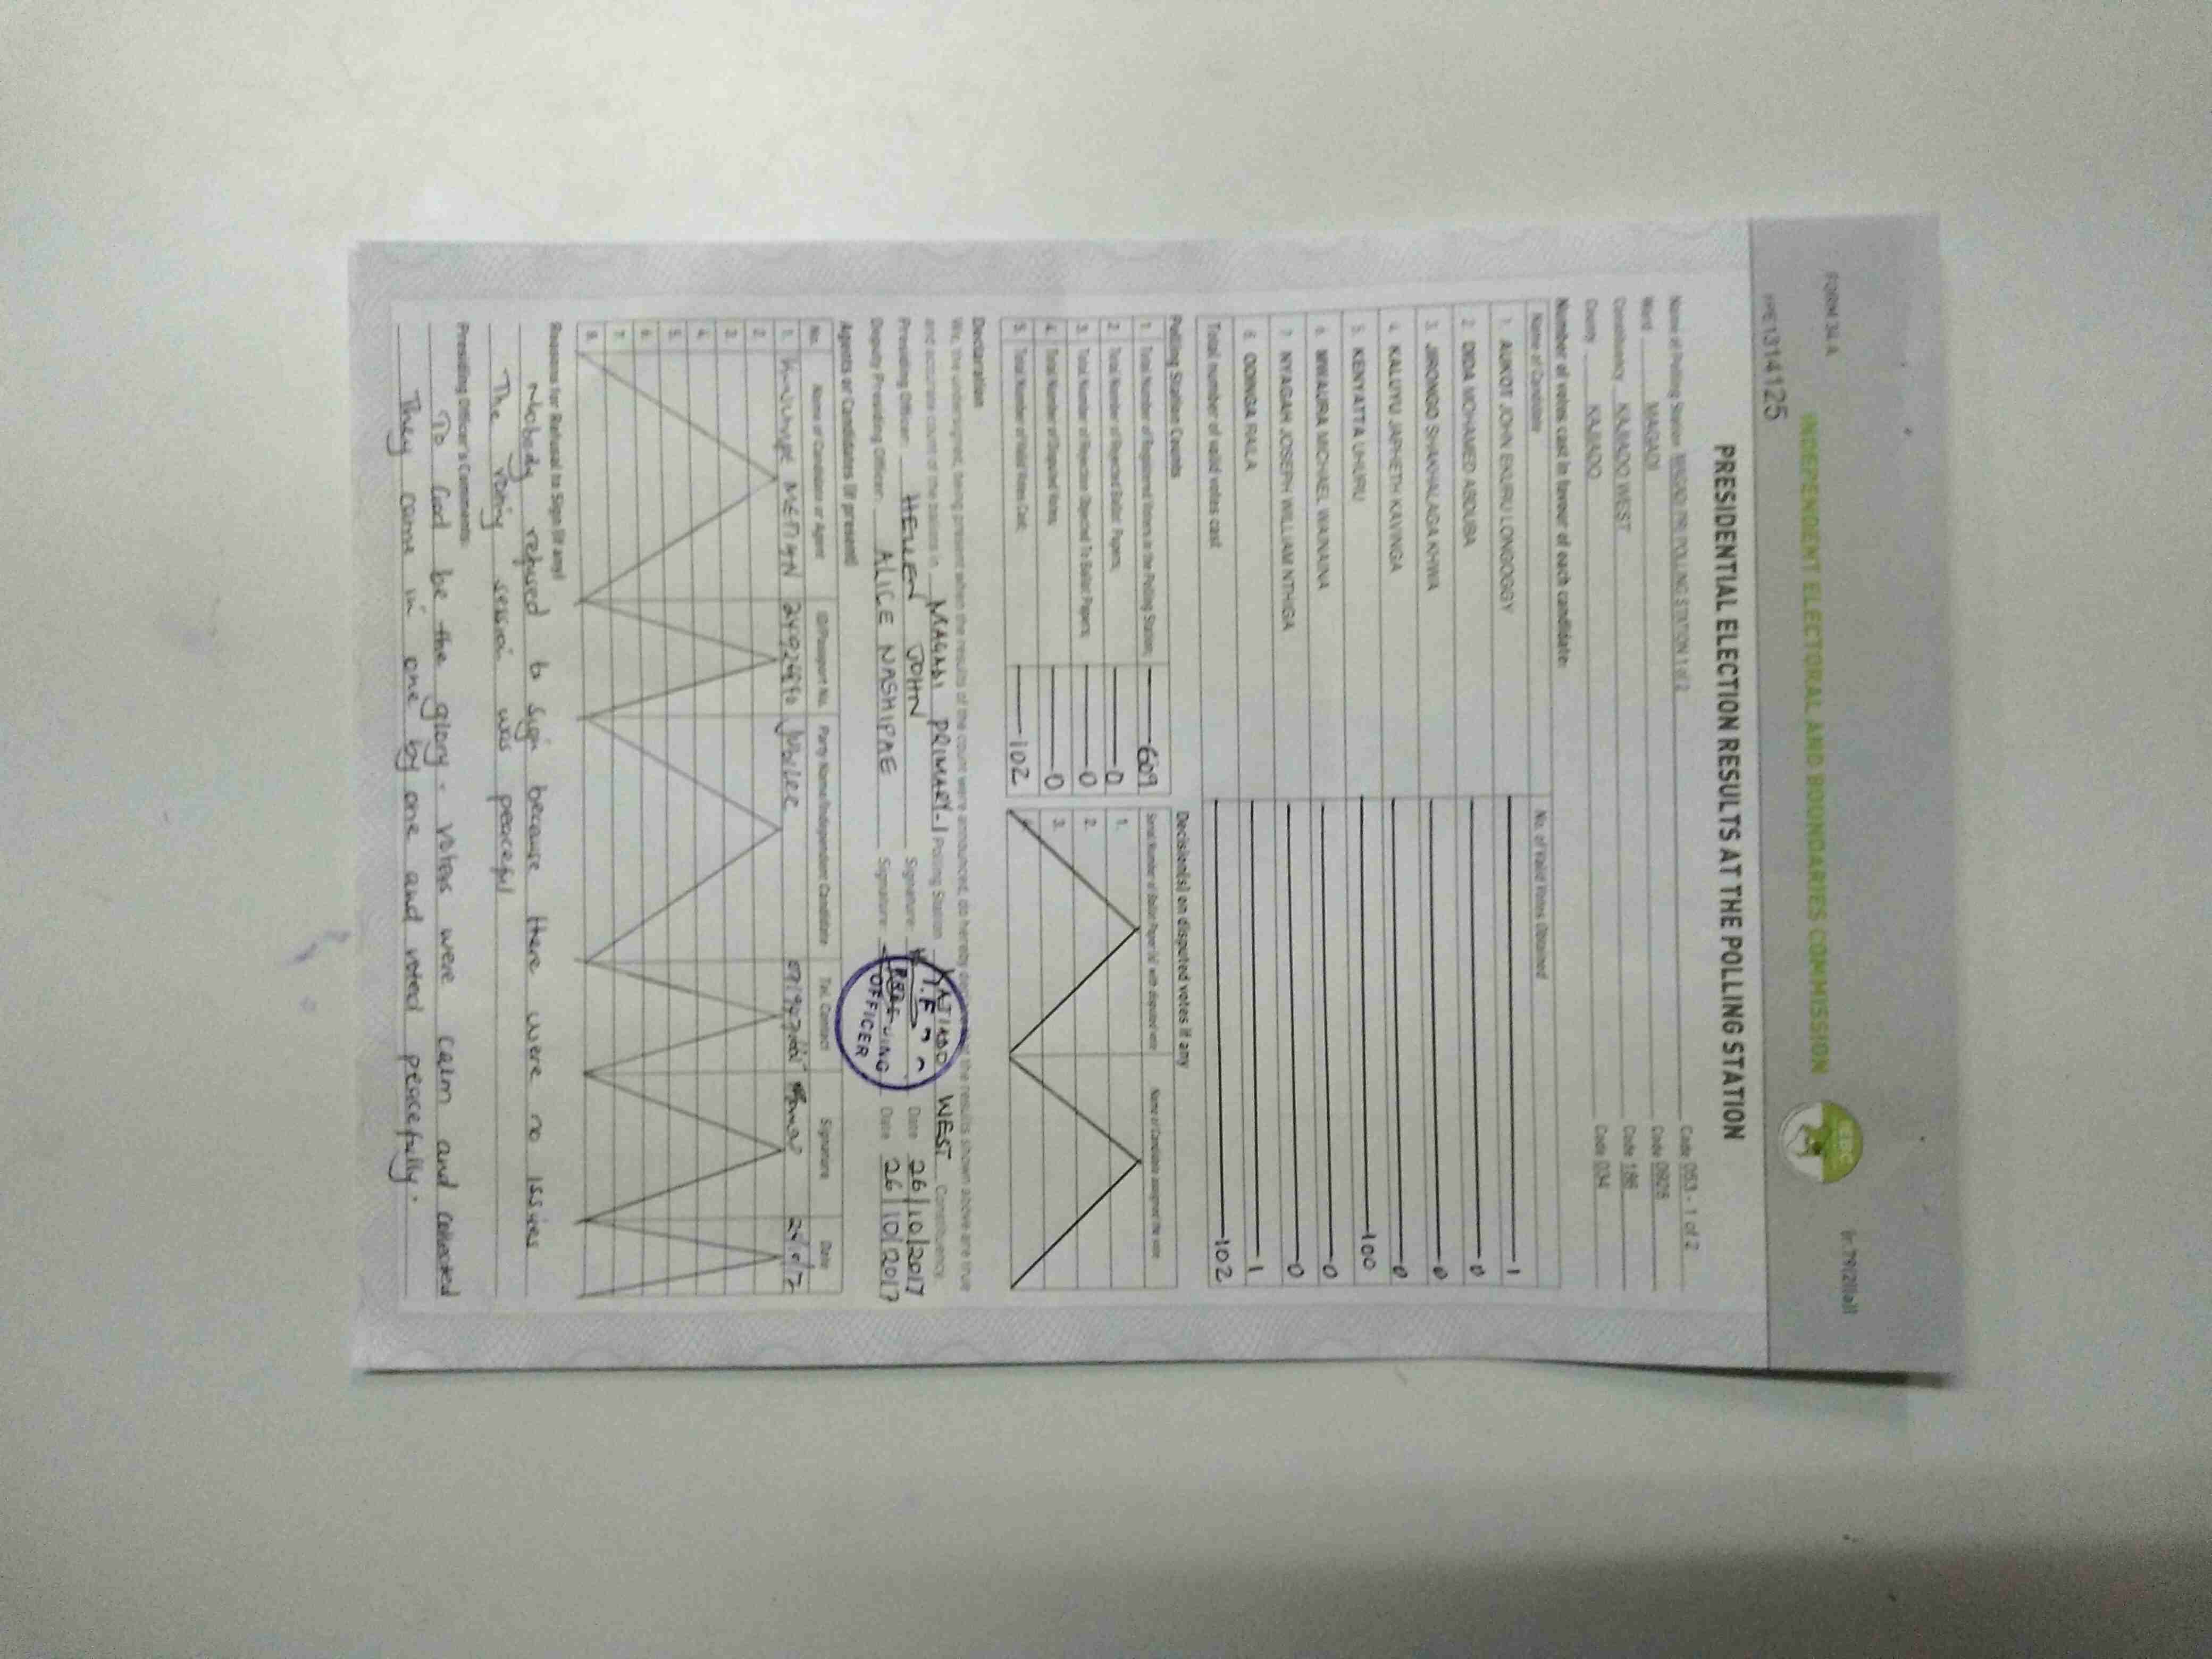 FORM 34 A
INDEPENDENT ELECTORAL AND BOUNDARIES COMMISSION
IEBC
PRE1314125
PRESIDENTIAL ELECTION RESULTS AT THE POLLING STATION
Name of Polling Station MAGADI PRI POLLING STATION 1 of 2 Code 053 - 1 of 2
Ward MAGADI Code 0928
Constituency KAJIADO WEST Code 186
County KAJIADO Code 034
Number of votes cast in favour of each candidate:
Name of Candidate No. of Valid Votes Obtained
1. AUKOT JOHN EKURU LONGOGGY 1
2. DIDA MOHAMED ABDUBA 0
3. JIRONGO SHAKHALAGA KHWA 0
4. KALUYU JAPHETH KAVINGA 0
5. KENYATTA UHURU 100
6. MWAURA MICHAEL WAINAINA 0
7. NYAGAH JOSEPH WILLIAM NTHIGA 0
8. ODINGA RAILA 1
Total number of valid votes cast 102
Polling Station Counts Decision(s) on disputed votes if any
1. Total Number of Registered Voters in the Polling Station; 609
2. Total Number of Rejected Ballot Papers; 0
3. Total Number of Rejection Objected To Ballot Papers; 0
4. Total Number of Disputed Votes; 0
5. Total Number of Valid Votes Cast; 102
Serial Number of Ballot Paper (s) with disputed vote Name of Candidate assigned the vote
1.
2.
3.
Declaration
We, the undersigned, being present when the results of the count were announced, do hereby declare that the results shown above are true
and accurate count of the ballots in MAGADI PRIMARY-1 Polling Station KAJIADO WEST Constituency.
Presiding Officer: HELLEN JOHN Signature: Date 26/10/2017
Deputy Presiding Officer: ALICE NASHIPAE Signature: Date 26/10/2017
OFFICER
Agents or Candidates (if present)
No. Name of Candidate or Agent ID/Passport No. Party Name/Independent Candidate Tel. Contact Signature Date
1. METIAN Jubilee
2.
3.
4.
5.
6.
7.
8.
Reasons for Refusal to Sign (if any)
Nobody refused to sign because there were no issues
The voting session was peaceful
Presiding Officer's Comments:
To God be the glory - voters were calm and
They came in one by one and voted peacefully.